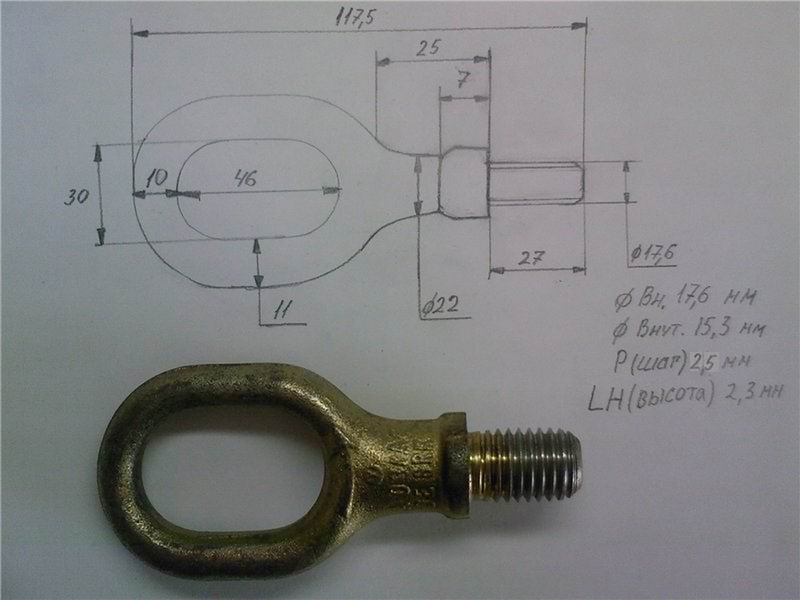 117,5
25
7
30
10
46
11
ϕ22
27
ϕ17,6
ϕ Вн. 17,6 мм
ϕ Внут. 15,3 мм
P (шаг) 2,5 мм
LH (высота) 2,3 мм